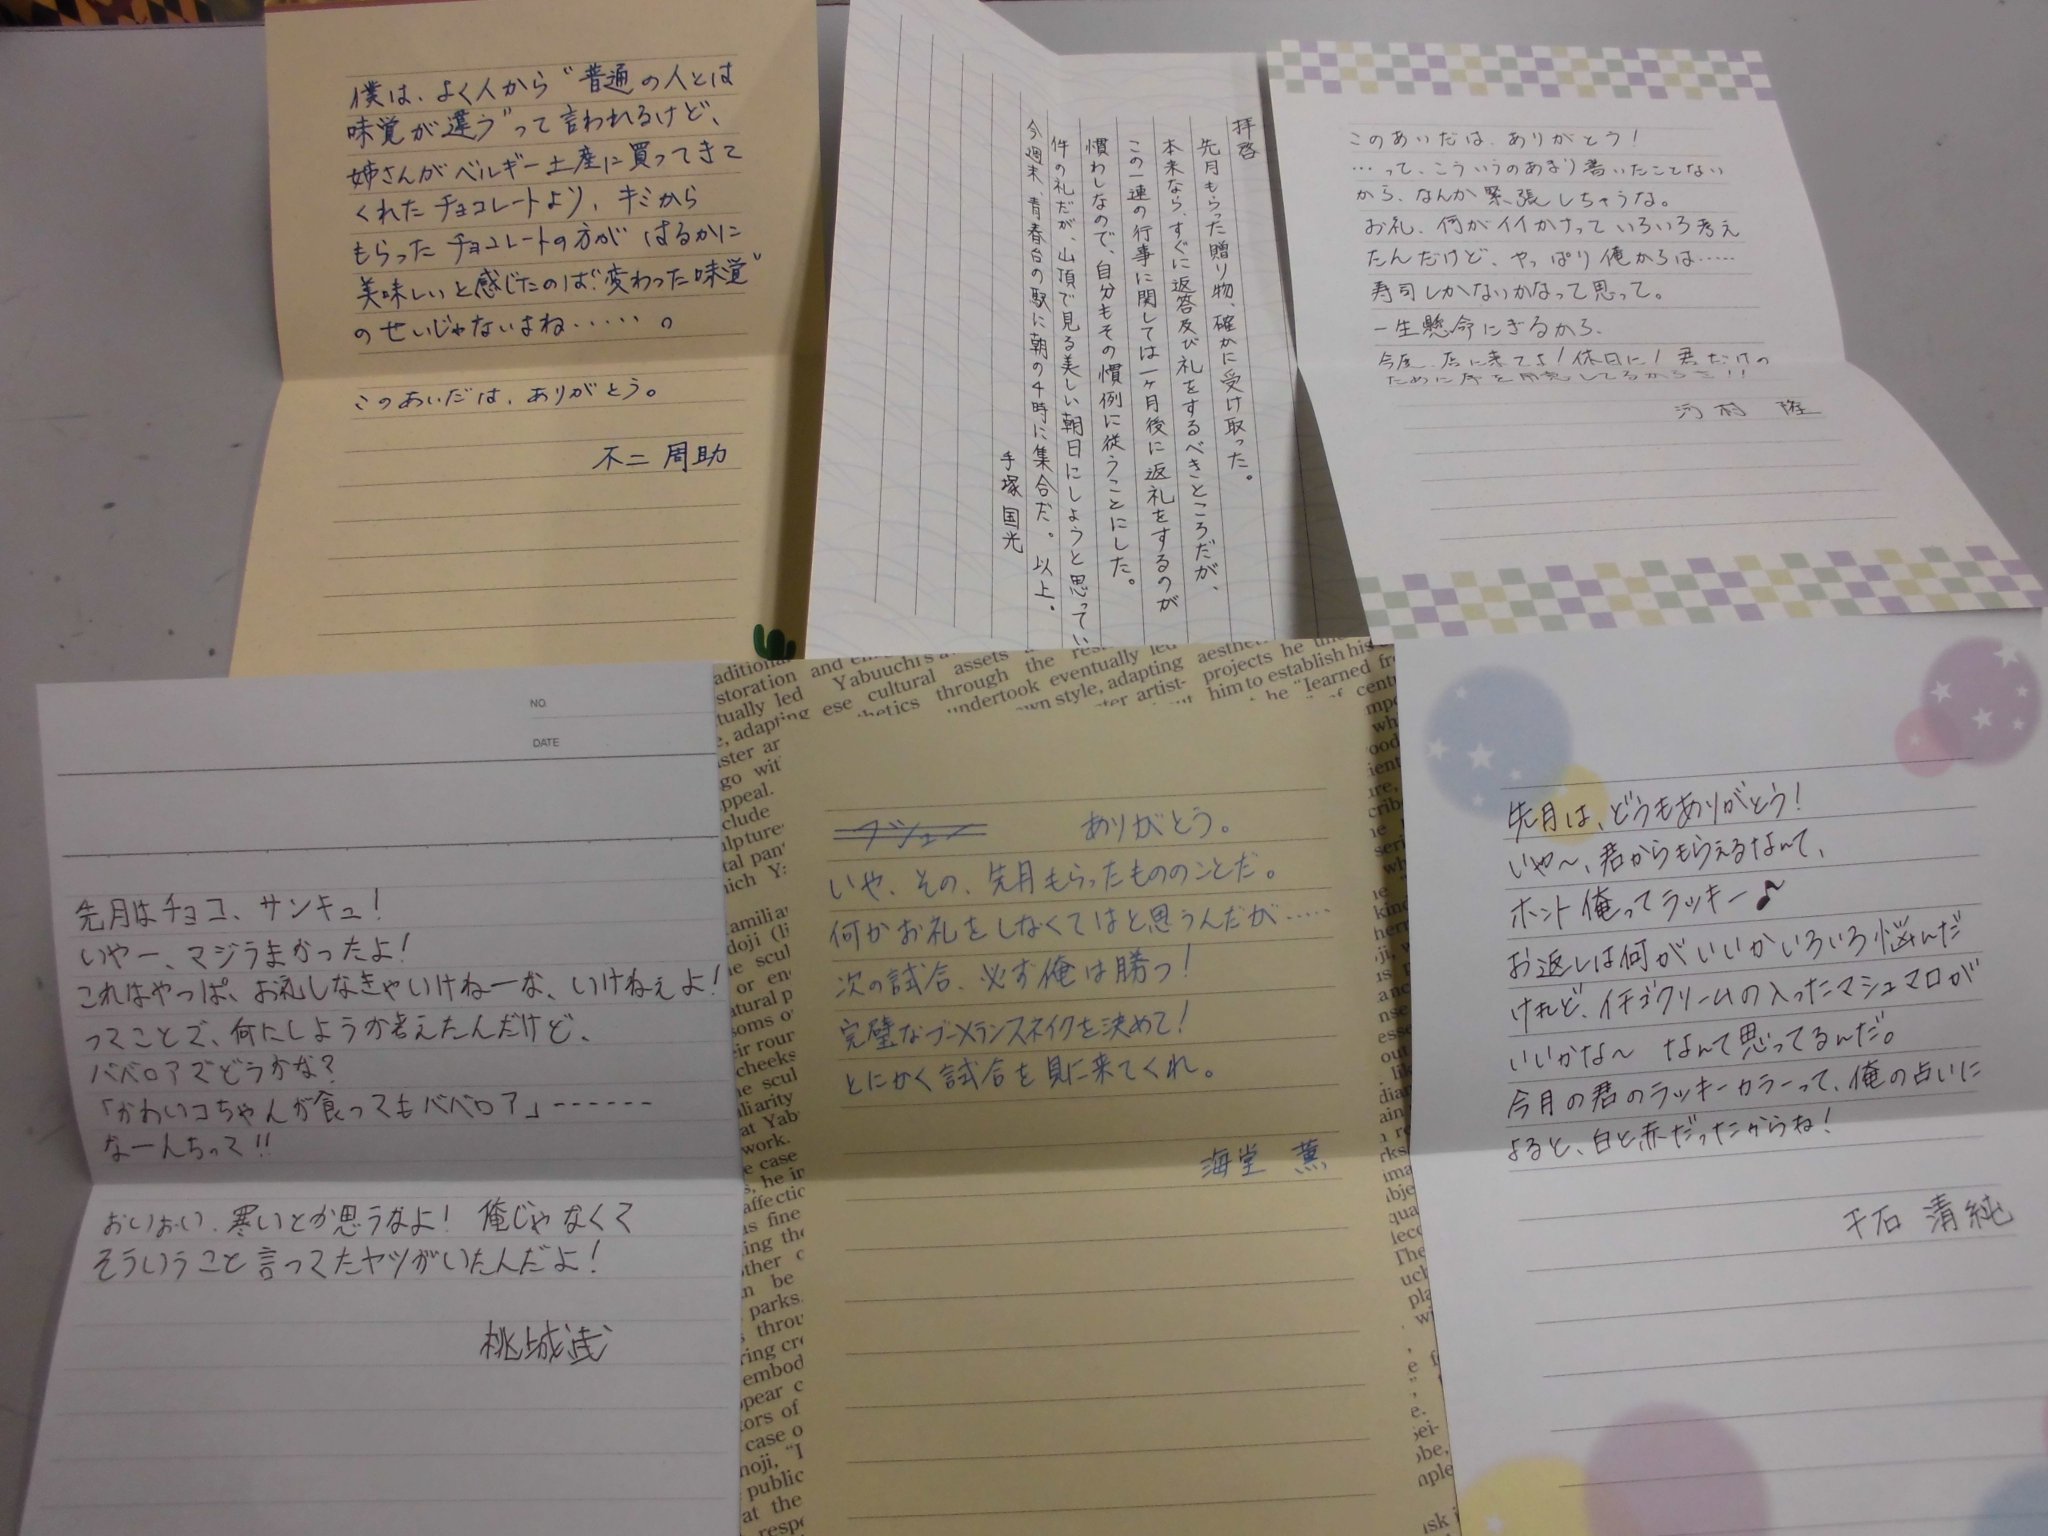 僕は、よく人から〝普通の人とは
味覚が違う〟って言われるけど、
姉さんがベルギー土産に買ってきて
くれたチョコレートより、キミから
もらったチョコレートの方が はるかに
美味しいと感じたのは〝変わった味覚〟
のせいじゃないよね……。
このあいだは、ありがとう。
不二 周助
拝啓
先月もらった贈り物、確かに受け取った。
本来なら、すぐに返答及び礼をするべきところだが、
この一連の行事に関しては一ヶ月後に返礼をするのが
慣わしなので、自分もその慣例に従うことにした。
件の礼だが、山頂で見る美しい朝日にしようと思ってい
今週末、青春台の駅に朝の4時に集合だ。以上。
手塚国光
このあいだは、ありがとう!
…って、こういうのあまり書いたことない
から、なんか緊張しちゃうな。
お礼、何がイイかなっていろいろ考え
たんだけど、やっぱり俺からは……
寿司しかないかなって思って。
一生懸命にぎるから、
今度、店に来てよ!休日に!君だけの
ために席を用意してるからさ!!
河村 隆
NO.
DATE
先月はチョコ、サンキュ!
いやー、マジうまかったよ!
これはやっぱ、お礼しなきゃいけねーな、いけねぇよ!
ってことで、何にしようか考えたんだけど、
ババロアでどうかな?
「かわいコちゃんが食ってもババロア」------
なーんちって!!
おいおい、寒いとか思うなよ! 俺じゃなくて
そういうこと言ってたヤツがいたんだよ!
桃城武
フシュー ありがとう。
いや、その、先月もらったもののことだ。
何かお礼をしなくてはと思うんだが……
次の試合、必ず俺は勝つ!
完璧なブーメランスネイクを決めて!
とにかく試合を見に来てくれ。
海堂 薫
先月は、どうもありがとう!
いや〜、君からもらえるなんて、
ホント俺ってラッキー♪
お返しは何がいいかいろいろ悩んだ
けれど、イチゴクリームの入ったマシュマロが
いいかな〜 なんて思ってるんだ。
今月の君のラッキーカラーって、俺の占いに
よると、白と赤だったからね!
千石 清純